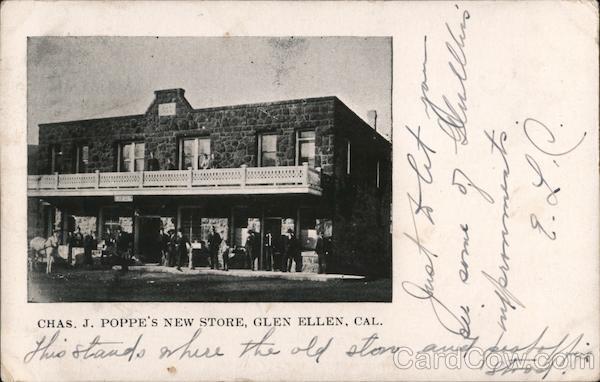 CHAS. J. POPPE'S NEW STORE, GLEN ELLEN, CAL.
This stands where the old store and postoffice
stood.
Just to let you
see some of Glen Ellen's
improvements
E. L. C.
CardCow.com